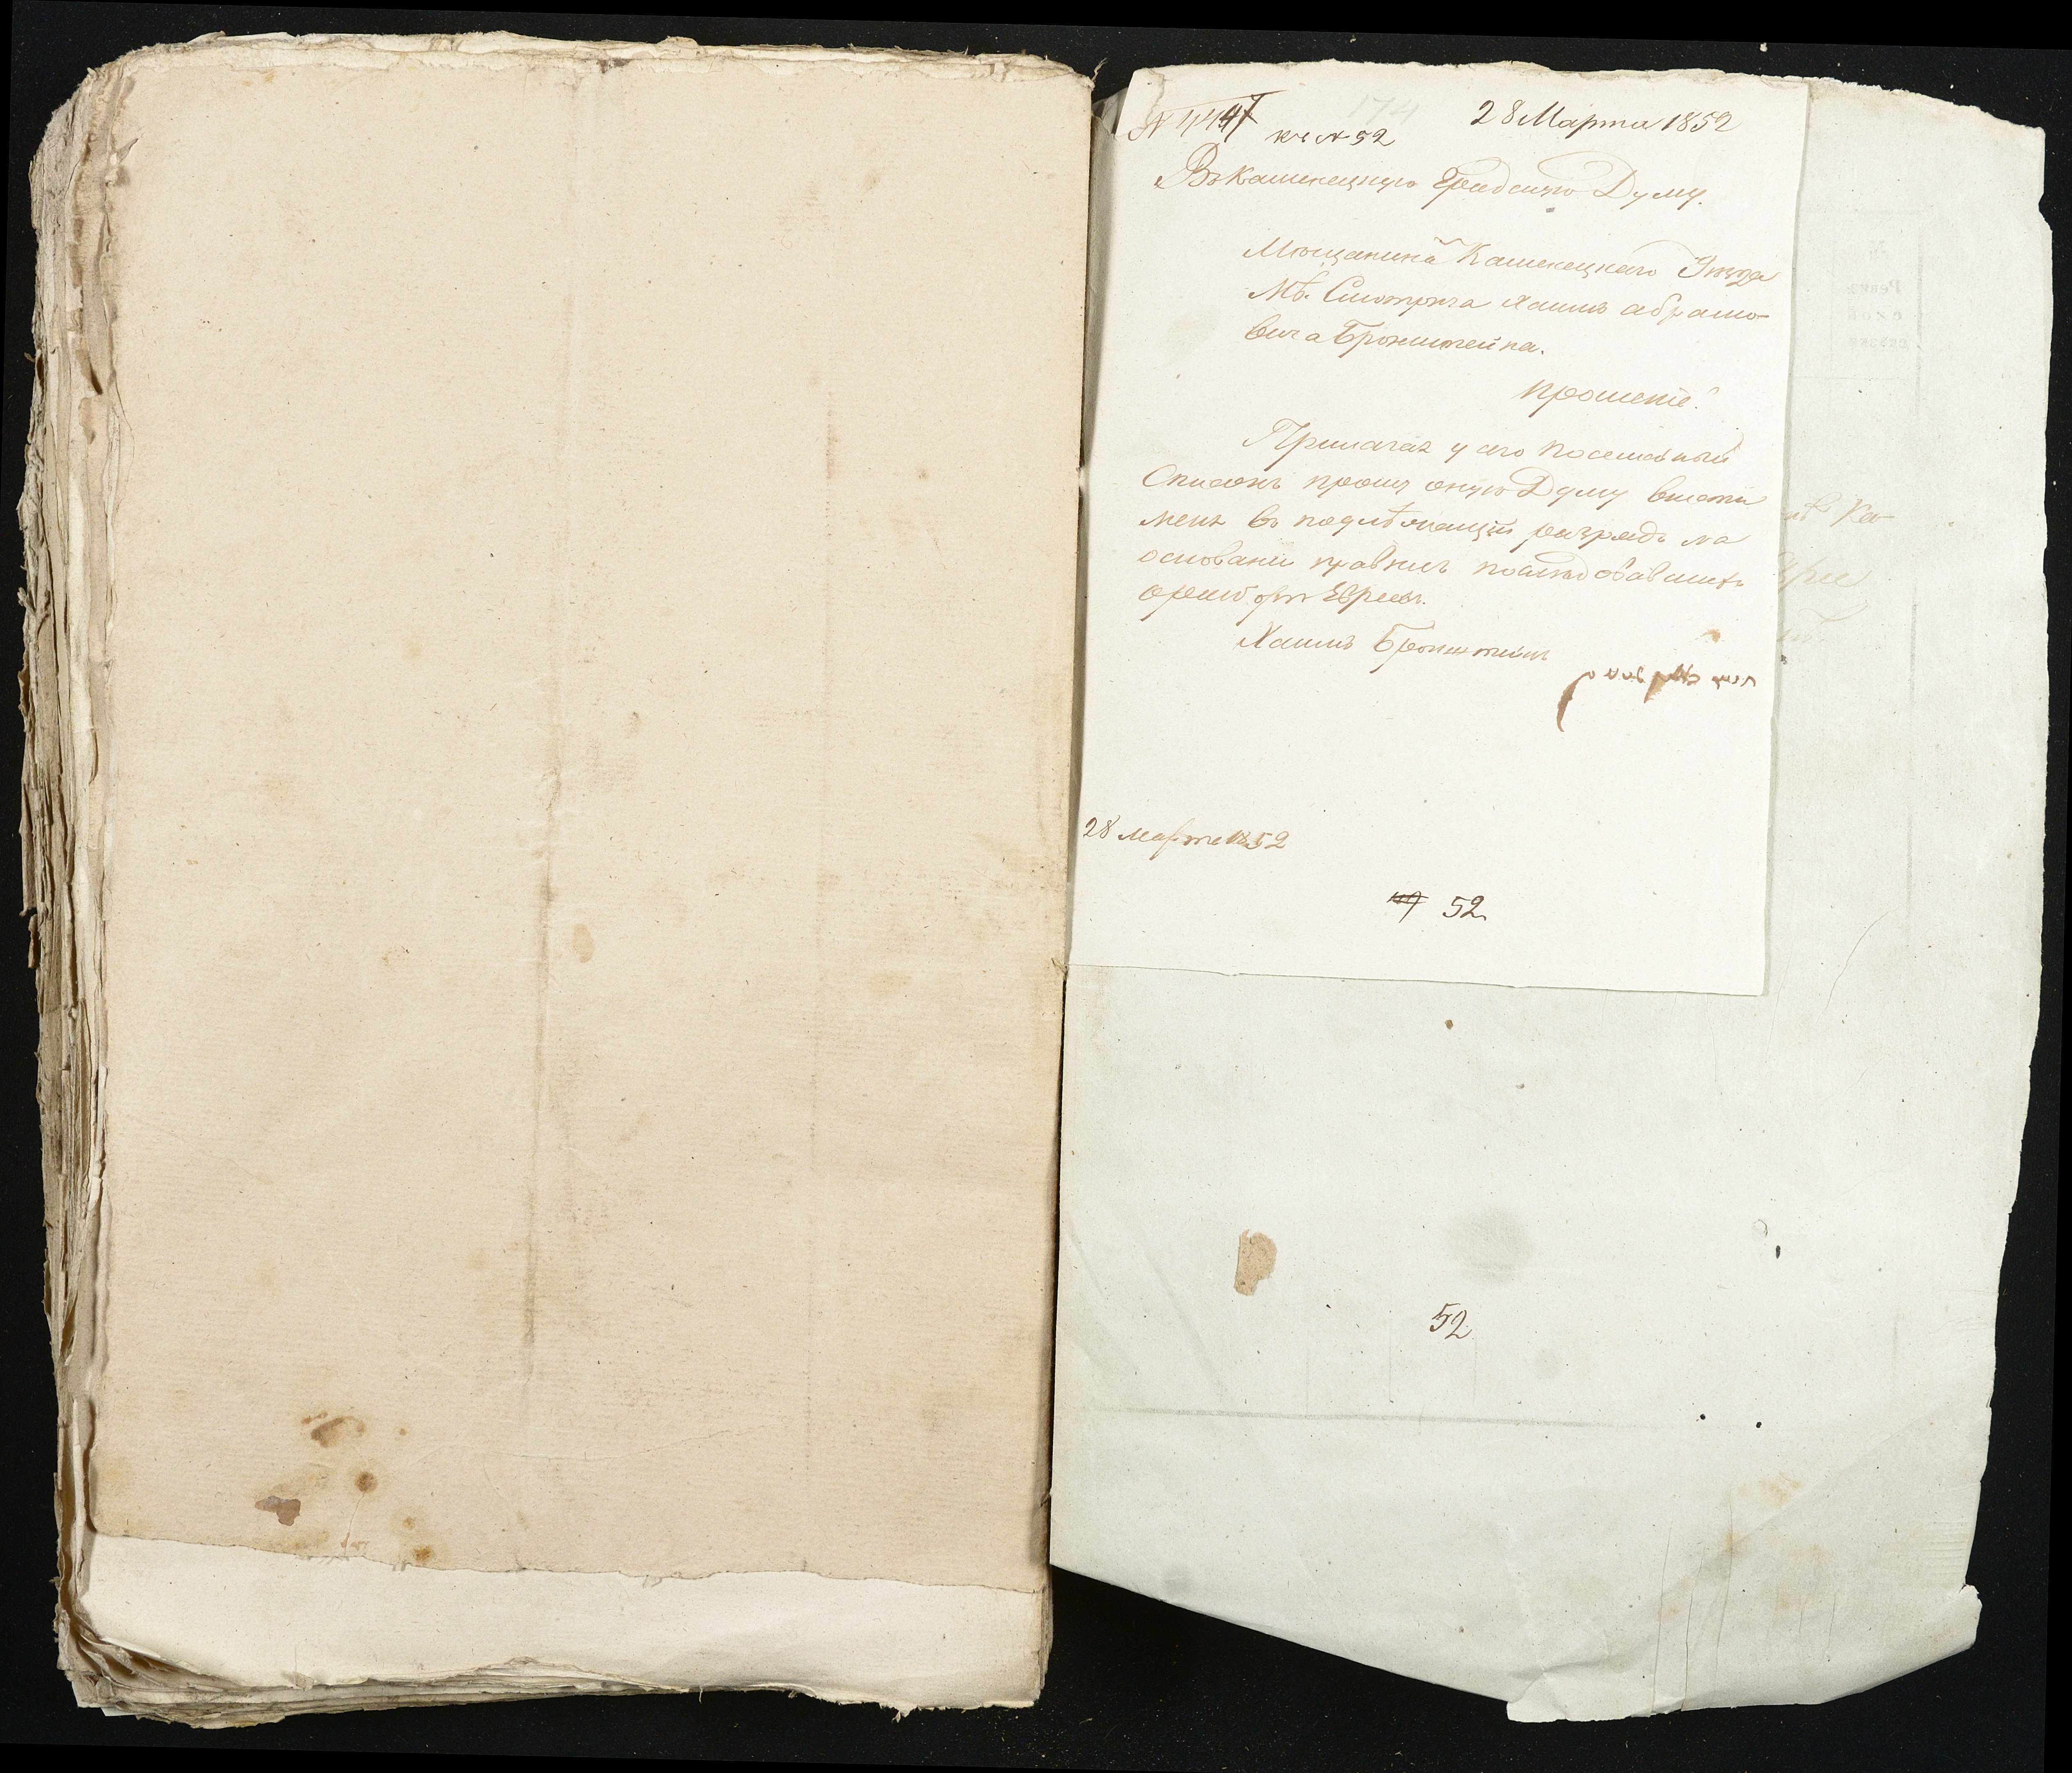 28 Марта 1852
къ № 52
Въ Каменецкую Градскую Думу.
Мещанина Каменецкаго Уезда
Мѣ. Смотрича Хаима Абрамо-
вича Бронштейна.
Прошенiе.
Прилагая у сего посемейный
Списокъ прошу оную Думу внести
меня въ подлѣжащiй разрядъ на
основании правилъ последовавшихъ
Евреевъ.
Хаимъ Бронштейнъ
28 марта 1852
52
52